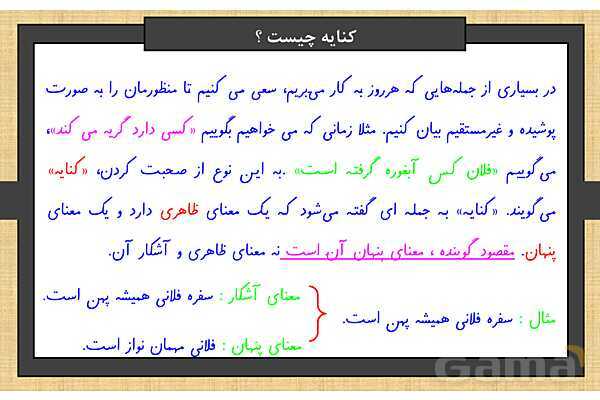 کنایه چیست ؟
در بسیاری از جمله‌هایی که هرروز به کار می‌بریم، سعی می کنیم تا منظورمان را به صورت
پوشیده و غیرمستقیم بیان کنیم. مثلا زمانی که می خواهیم بگوییم «کسی دارد گریه می کند»،
می‌گوییم «فلان کس آبغوره گرفته است» .به این نوع از صحبت کردن، «کنایه»
می‌گویند. «کنایه» به جمله ای گفته می‌شود که یک معنای ظاهری دارد و یک معنای
پنهان. مقصود گوینده ، معنای پنهان آن است نه معنای ظاهری و آشکار آن.
مثال : سفره فلانی همیشه پهن است.
معنای آشکار : سفره فلانی همیشه پهن است.
معنای پنهان : فلانی مهمان نواز است.
Gama